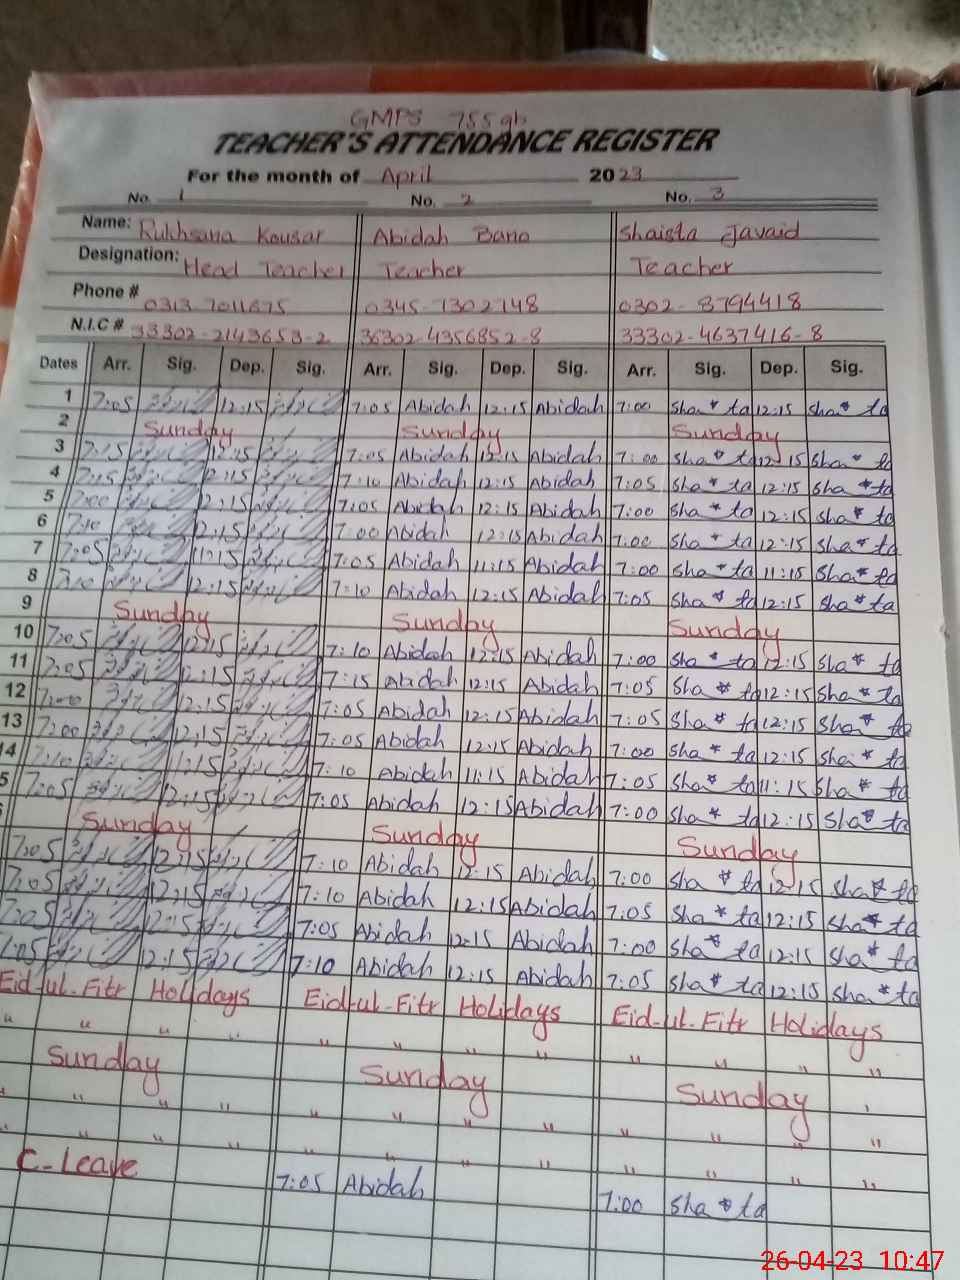 GMPS 755 gb
TEACHER'S ATTENDANCE REGISTER
For the month of April 2023
No. 1 No. 2 No. 3
Name: Rukhsana Kousar Abidah Bano Shaista Javaid
Designation: Head Teacher Teacher Teacher
Phone # 0313-7011675 0345-7302748 0302-8794418
N.I.C # 33302-2143653-2 36302-4356852-8 33302-4637416-8
Dates Arr. Sig. Dep. Sig. Arr. Sig. Dep. Sig. Arr. Sig. Dep. Sig.
1 7:05 12:15 7:05 Abidah 12:15 Abidah 7:00 Sha*ta 12:15 Sha*ta
2 Sunday Sunday Sunday
3 7:15 12:15 7:05 Abidah 12:15 Abidah 7:00 Sha*ta 12:15 Sha*ta
4 7:15 12:15 7:10 Abidah 12:15 Abidah 7:05 Sha*ta 12:15 Sha*ta
5 7:00 12:15 7:05 Abidah 12:15 Abidah 7:00 Sha*ta 12:15 Sha*ta
6 7:10 12:15 7:00 Abidah 12:15 Abidah 7:00 Sha*ta 12:15 Sha*ta
7 7:05 11:15 7:05 Abidah 11:15 Abidah 7:00 Sha*ta 11:15 Sha*ta
8 7:10 12:15 7:10 Abidah 12:15 Abidah 7:05 Sha*ta 12:15 Sha*ta
9 Sunday Sunday Sunday
10 7:05 12:15 7:10 Abidah 12:15 Abidah 7:00 Sha*ta 12:15 Sha*ta
11 7:05 12:15 7:15 Abidah 12:15 Abidah 7:05 Sha*ta 12:15 Sha*ta
12 7:00 12:15 7:05 Abidah 12:15 Abidah 7:05 Sha*ta 12:15 Sha*ta
13 7:00 12:15 7:05 Abidah 12:15 Abidah 7:00 Sha*ta 12:15 Sha*ta
14 7:10 11:15 7:10 Abidah 11:15 Abidah 7:05 Sha*ta 11:15 Sha*ta
5 7:05 12:15 7:05 Abidah 12:15 Abidah 7:00 Sha*ta 12:15 Sha*ta
Sunday Sunday Sunday
7:05 12:15 7:10 Abidah 12:15 Abidah 7:00 Sha*ta 12:15 Sha*ta
7:05 12:15 7:10 Abidah 12:15 Abidah 7:05 Sha*ta 12:15 Sha*ta
7:05 12:15 7:05 Abidah 12:15 Abidah 7:00 Sha*ta 12:15 Sha*ta
7:05 12:15 7:10 Abidah 12:15 Abidah 7:05 Sha*ta 12:15 Sha*ta
Eid-ul-Fitr Holidays Eid-ul-Fitr Holidays Eid-ul-Fitr Holidays
" " " " " " " " " " " "
Sunday Sunday Sunday
" " " " " " " " " "
" " " " " " " " " "
C-Leave 7:05 Abidah 7:00 Sha*ta
26-04-23 10:47